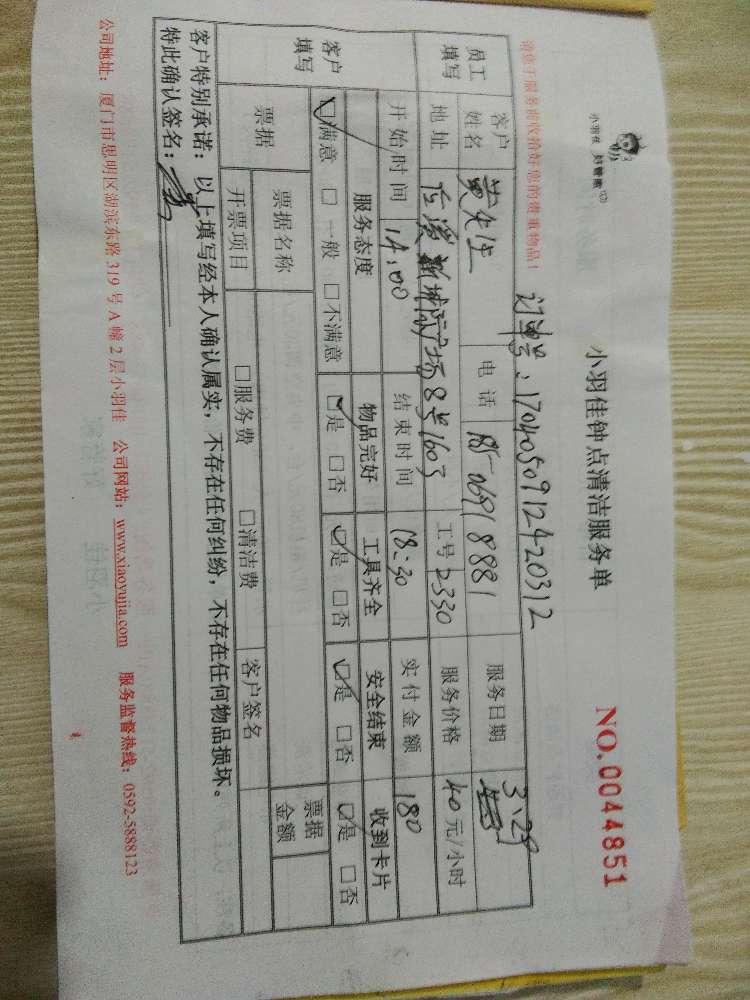 小羽佳 好管家
小羽佳钟点清洁服务单
NO.0044851
请您于服务前收拾好您的贵重物品！
订单号：1704050912420312
员工填写
客户姓名 黄先生 电话 服务日期 3、29
地址 8号1603 工号 2330 服务价格 40元/小时
开始时间 14:00 结束时间 18:30 实付金额 180
客户填写
服务态度 物品完好 工具齐全 安全结束 收到卡片
☑满意 □一般 □不满意 ☑是 □否 ☑是 □否 ☑是 □否 ☑是 □否
票据 票据名称 票据金额
开票项目 □服务费 □清洁费 客户签名
客户特别承诺：以上填写经本人确认属实，不存在任何纠纷，不存在任何物品损坏。
特此确认签名：
公司地址：厦门市思明区湖滨东路319号A幢2层小羽佳 公司网站：www.xiaoyujia.com 服务监督热线：0592-5888123